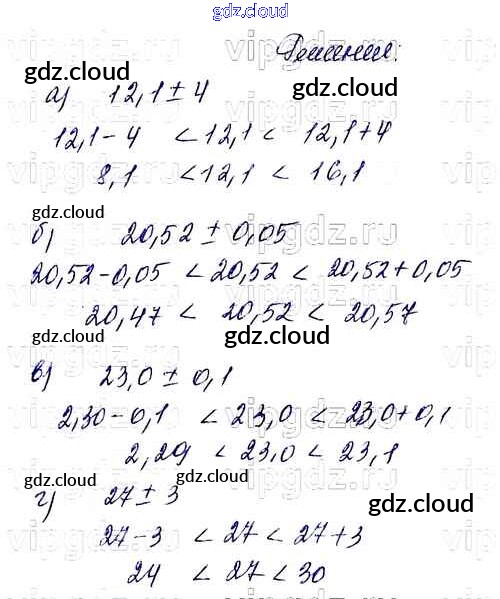 gdz.cloud
Решение:
gdz.cloud gdz.cloud
а) 12,1 ± 4
12,1 - 4 < 12,1 < 12,1 + 4
8,1 < 12,1 < 16,1
gdz.cloud gdz.cloud
б) 20,52 ± 0,05
20,52 - 0,05 < 20,52 < 20,52 + 0,05
20,47 < 20,52 < 20,57
gdz.cloud gdz.cloud
в) 23,0 ± 0,1
2,30 - 0,1 < 23,0 < 23,0 + 0,1
2,29 < 23,0 < 23,1
gdz.cloud gdz.cloud
г) 27 ± 3
gdz.cloud
27 - 3 < 27 < 27 + 3
24 < 27 < 30